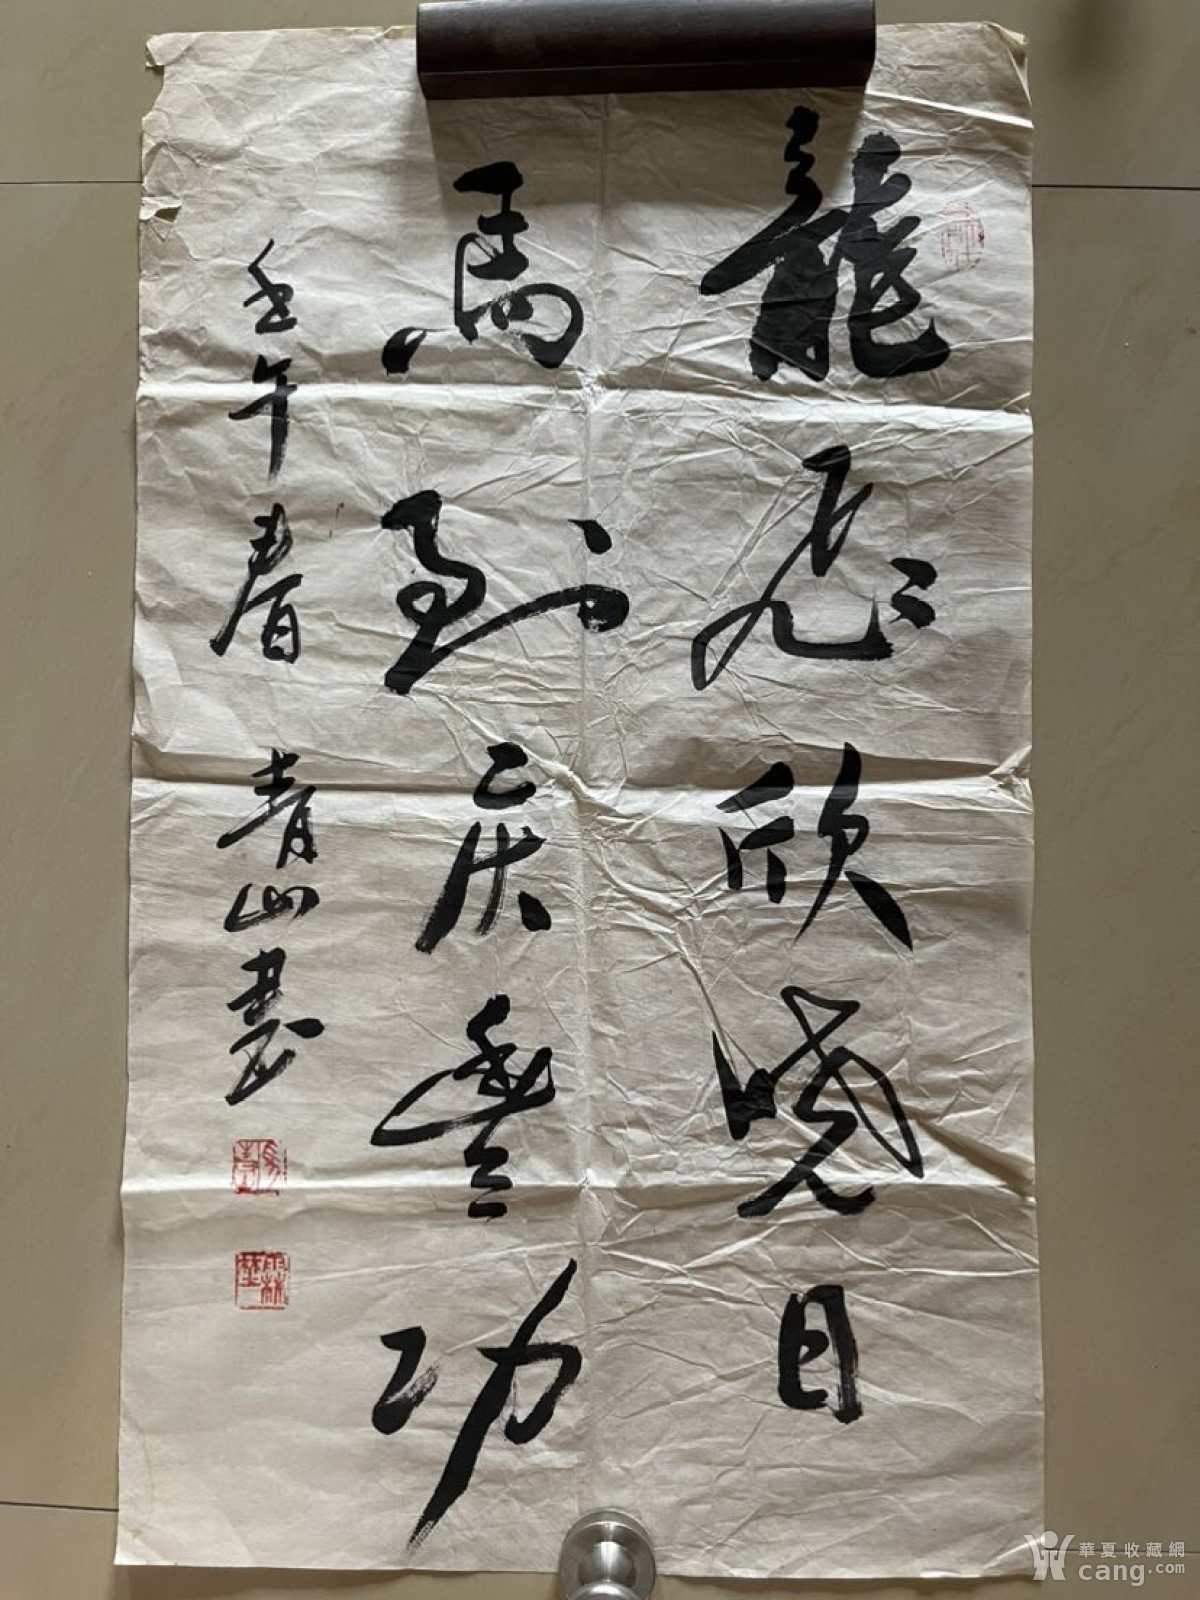 龍飛欣曉日
馬到慶豐功
壬午春 青山書
華夏收藏網
cang.com